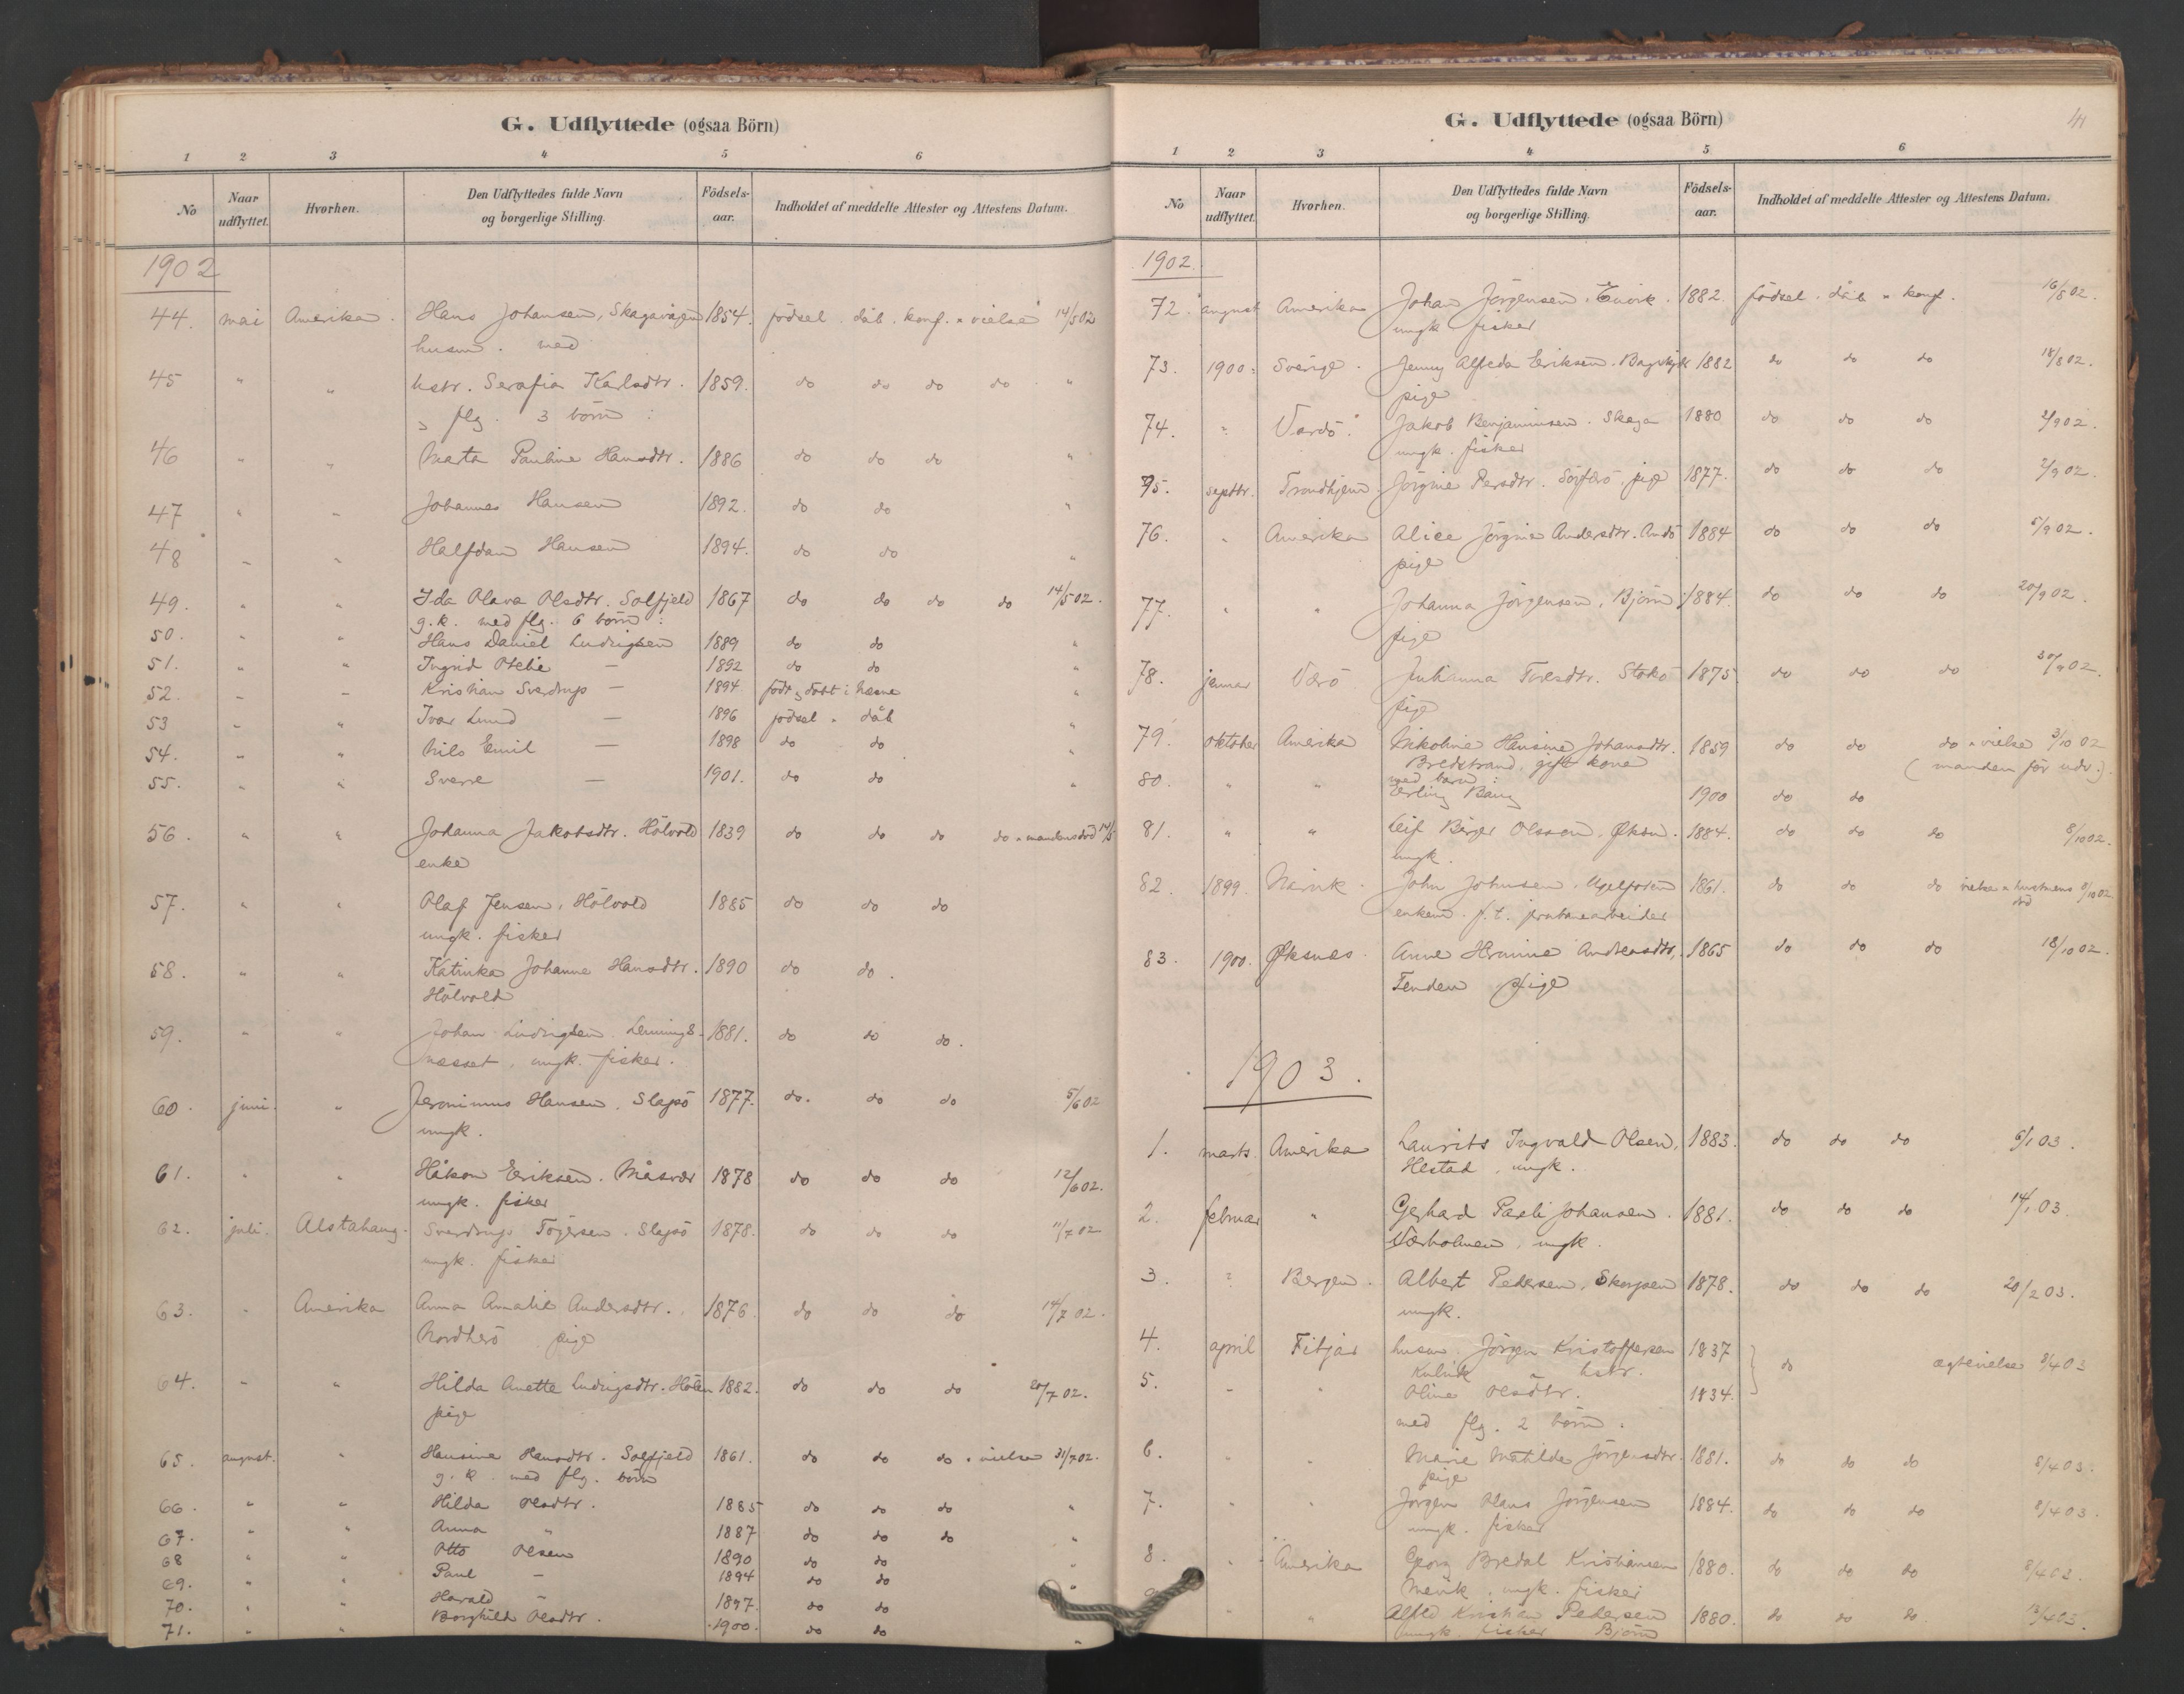 G. Udflyttede (ogsaa Börn)
1 2 3 4 5 6
No Naar udflyttet. Hvorhen. Den Udflyttedes fulde Navn og borgerlige Stilling. Födsels-aar. Indholdet af meddelte Attester og Attestens Datum.
1902
44. mai Amerika. Hans Johansen, Skagavågen 1854. födsel. dåb. konf. " vielse 14/5 02
husm. med
45 " " hstr. Serafia Karlsdtr. 1859. do do do do "
flg. 3 börn :
46 " " Marta Pauline Hansdtr. 1886 do do do "
47 " " Johannes Hansen 1892. do do "
48 " " Halfdan Hansen 1894. do do "
49. " " Ida Olava Olsdtr. Solfjeld 1867 do do do do 14/5 02.
g.k. med flg. 6 börn :
50. " " Hans Daniel Ludvigsen 1889 do do "
51. " " Ingrid Otelie — 1892 do do "
52. " " Kristian Sverdrup — 1894 födt, döbt i "
53 " " Ivar Lund — 1896 födsel " dåb "
54. " " Nils Emil — 1898 do do "
55. " " Sverre — 1901. do do "
56. " " Johanna Jakobsdtr. Hölvold 1839 do do do do " mandens död 14/5
enke
57. " " Olaf Jensen, Hölvold 1885 do do do
ungk. fisker
58. " " Katinka Johanne Hansdtr. 1890 do do.
Hölvold
59. " " Johan Ludvigsen Lennings- 1881. do do do.
nesset, ungk. fisker.
60. juni. " Jeronimus Hansen. Slapö 1877. do. do do 5/6 02
ungk.
61. " " Håkon Eriksen. Måsvær 1878 do do do 12/6 02.
ungk. fisker
62. juli. Alstahaug. Sverdrup Togersen. Slapö 1878. do do do 11/7 02
ungk. fisker
63. " Amerika Anna Amalie Andersdtr. 1876. do do do 14/7 02.
Nordherö pige
64. " " Hilda Anette Ludvigsdtr. 1882. do do do 20/7 02.
pige
65. august. " Hansine Hansdtr. Solfjeld 1861. do do do " vielse 31/7 02.
g. k. med flg. börn
66. " " Hilda Olsdtr. 1885 do do do "
67. " " Anna " 1887 do do do "
68 " " Otto Olsen 1890 do do "
69. " " Paul — 1894 do do "
70. " " Harald " 1897. do do
71. " " Borghild Olsdtr. 1900. do do "
G. Udflyttede (ogsaa Börn) 41
1 2 3 4 5 6
No Naar udflyttet. Hvorhen. Den Udflyttedes fulde Navn og borgerlige Stilling. Födsels-aar. Indholdet af meddelte Attester og Attestens Datum.
1902.
72. august Amerika Johan Jörgensen. 1882. födsel. dåb " konf. 16/8 02.
ungk fisker
73. 1900. Sverige. Jenny Alfreda Eriksen. 1882 do do do 18/8 02.
pige
74. " Vardö. Jakob Benjaminsen. Skaga 1880 do do do 2/9 02.
ungk. fisker
75. septbr. Trondhjem Jörgine Persdtr. pige 1877. do do do 2/9 02.
76. " Amerika Alice Jörgine Andersdtr. 1884 do do do 5/9 02.
pige
77. " " Johanna Jörgensen, Björn 1884. do do do 20/9 02.
pige
78. januar Værö Julianna Toresdtr. Stokö 1875 do do do 30/9 02.
pige
79. oktober Amerika Nikoline Hansine Johansdtr. 1859 do do do " vielse 3/10 02
Bredstrand, gift kone (manden för udv.).
80. " " med barn :
Erling Bang 1900 do do
81. " " Leif Birger Olssen. 1884. do do do 8/10 02.
ungk.
82. 1899. Narvik. John Johnsen. 1861. do do do vielse " hustruens död 8/10 02.
enkem. f.t. arbeider
83. 1900. Öksnes. Anne Hermine Andreasdtr. 1865 do do do 18/10 02.
Tenden pige
1903.
1. marts. Amerika Laurits Ingvald Olsen, 1883. do do do 6/1 03.
Hestad, ungk.
2. februar " Gerhard Pareli Johansen. 1881. do do do 14/1 03.
Værholmen, ungk.
3. " Bergen. Albert Pedersen, 1878. do do do 20/2 03.
ungk.
4. april Fitjar husm. Jörgen Kristoffersen 1837 do ægtevielse 8/4 03
Kulvik " hstr.
5. " " Oline Olsdtr. 1834.
med flg. 2 börn.
6. " " Marie Matilde Jörgensdtr. 1881. do do do 8/4 03.
pige
7. " " Jörgen Olaus Jörgensen 1884. do do do 8/4 03.
ungk. fisker
8. " Amerika Georg Bredal Kristiansen 1880. do do do 8/4 03.
Mevik, ungk. fisker
9 " " Alfred Kristian Pedersen 1880. do do do. 13/4 03.
ungk. fisker Björn